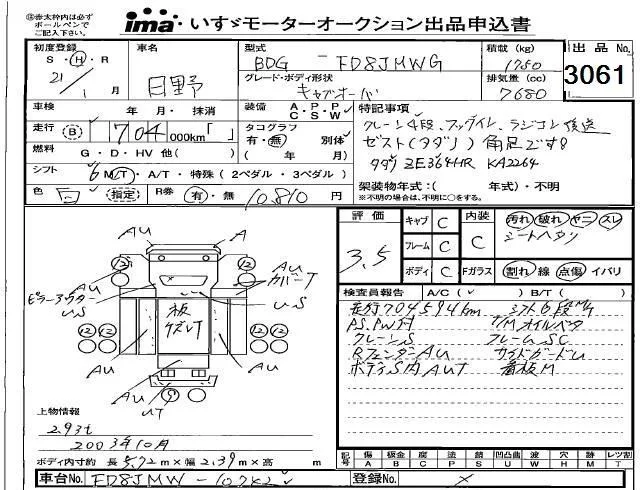 ㊟赤太枠内は必ず
ボールペンで
ご記入下さい。
ima いすゞモーターオークション出品申込書
初度登録 車名 型式 積載 (kg) 出品 No.
S・H・R BDG - FD8JMWG 1750 3061
21/1 月 日野 グレード・ボディ形状 排気量 (cc)
キャブオーバ 7680
車検 年 月・抹消 装備 A・P・P C・S・W 特記事項
走行 B 704 000km「 」 タコグラフ 有・無 別体 クレーン4段、フックイン、ラジコン後送
ゼスト(タダノ)角足です!
燃料 G・D・HV 他( ) ( 年 月) タダノ ZE364HR KA2264
シフト 6 M/T・A/T・特殊 ( 2ペダル・3ペダル ) 架装物年式:( 年式)・不明
※不明の場合は、不明に○をする。
色 白 指定 R券 有・無 10,810 円
評価 キャブ C 内装 汚れ 破れ ヤニ スレ
3.5 フレーム C C シートヘタリ
ボディ C Fガラス 割れ 線 点傷 イバリ
検査員報告 A/C( ✓ ) B/T( )
走行704594km シフト6段M/T
PS.PW付 T/Mオイルベタ
クレーンS フレームSC
RフェンダーAU サイドガードU
ボディS内AUT 看板M
AU A
AU
カバーT
US
ピラーアウター
US
板
ケズレT
AU
AU
AU
UT
12 12
12 12
上物情報
2.93t
2003年10月
ボディ内寸約 長 5.72 m×幅 2.39 m×高 m
記号 傷 A 板金 B 腐 C 塗 P 錆 S 凹凸曲 U 波 W 穴 H 跡 M 欠 T レツ割
車台No. FD8JMW-10242 登録No. ×